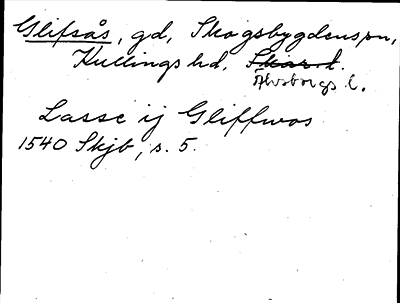 Glifsås, gd, Skogsbygdens sn,
Kullings hd. Skar. l.
Älvsborgs l.
Lasse ij Gliffwos
1540 Skjb, s. 5.